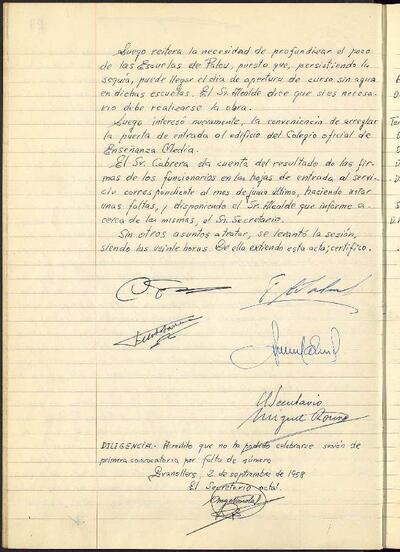 Luego reitera la necesidad de profundizar el pozo
de las Escuelas de Palou, puesto que, persistiendo la
sequía, puede llegar el día de apertura de curso sin agua
en dichas escuelas. El Sr. Alcalde dice que si es nece-
rio debe realizarse la obra.
Luego interesó nuevamente, la conveniencia de arreglar
la puerta de entrada al edificio del Colegio oficial de
Enseñanza Media.
El Sr. Cabrera da cuenta del resultado de las fir-
mas de los funcionarios en las hojas de entrada al servi-
cio correspondiente al mes de junio último, haciendo notar
unas faltas, y disponiendo el Sr. Alcalde que informe a-
cerca de las mismas, el Sr. Secretario.
Sin otros asuntos a tratar, se levantó la sesión,
siendo las veinte horas. De ella extiendo esta acta; certifico.
El Secretario
Miguel
DILIGENCIA.- Acredito que no ha podido celebrarse sesión de
primera convocatoria por falta de número
Granollers, 2 de septiembre de 1958
El Secretario actal.